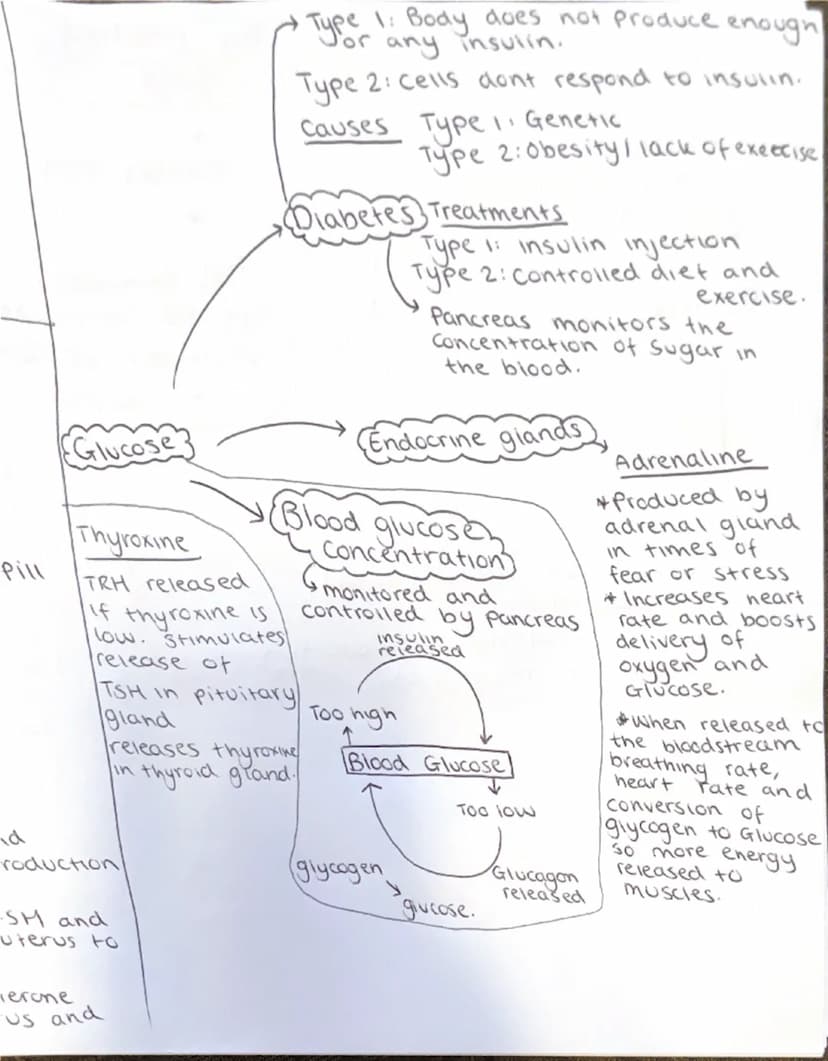 Type 1: Body does not produce enough
or any insulin.
Type 2: Cells dont respond to insulin.
Causes Type 1: Genetic
Type 2: Obesity / lack of exercise
Diabetes
Treatments
Type 1: insulin injection
Type 2: Controlled diet and
exercise.
Pancreas monitors the
concentration of sugar in
the blood.
Glucose
Endocrine glands
Adrenaline
*Produced by
adrenal gland
in times of
fear or stress
* Increases heart
rate and boosts
delivery of
oxygen and
Glucose.
*When released to
the bloodstream
breathing rate,
heart rate and
conversion of
glycogen to Glucose
so more energy
released to
muscles.
Blood glucose
concentration
monitored and
controlled by pancreas
insulin
released
Too high
Blood Glucose
Too low
Glucagon
released
glycogen
glucose.
Thyroxine
TRH released
if thyroxine is
low. Stimulates
release of
TSH in pituitary
gland
releases thyroxine
in thyroid gland.
Pill
roduction
SH and
uterus to
erone
us and